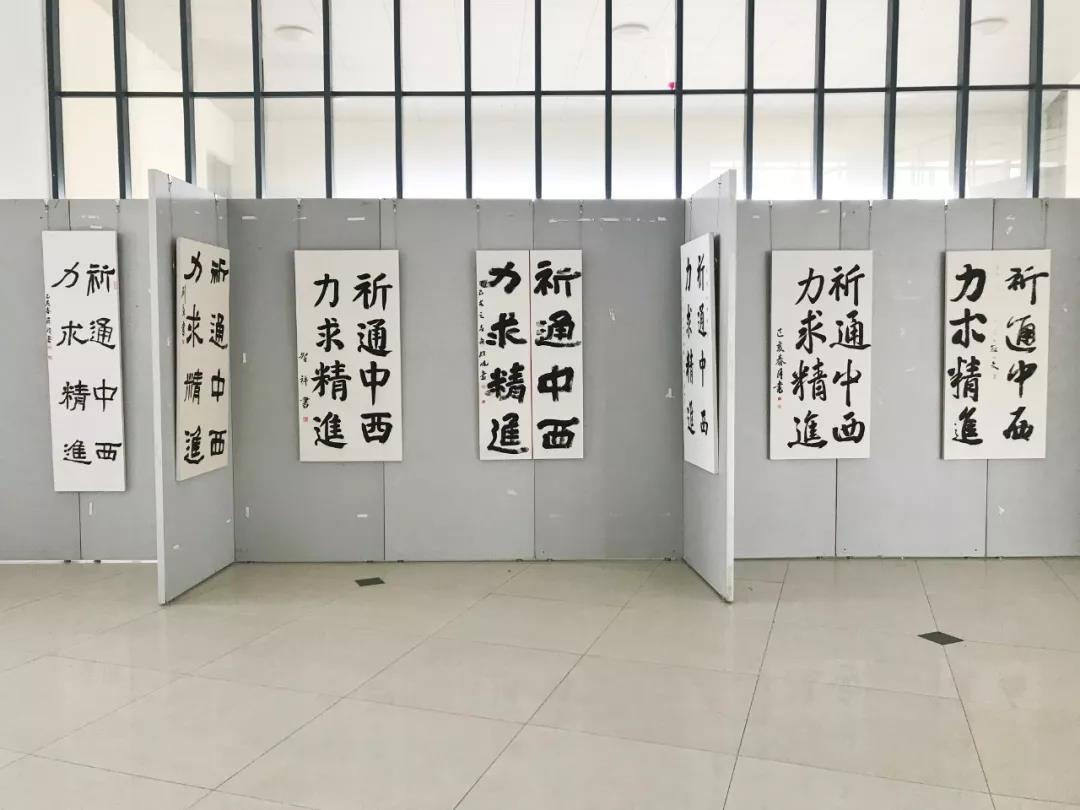 祈通中西
力求精進
祈通中西
力求精進
祈通中西
力求精進
智祥書
祈通中西
力求精進
祈通中西
力求精進
祈通中西
力求精進
己亥春月書
祈通中西
力求精進